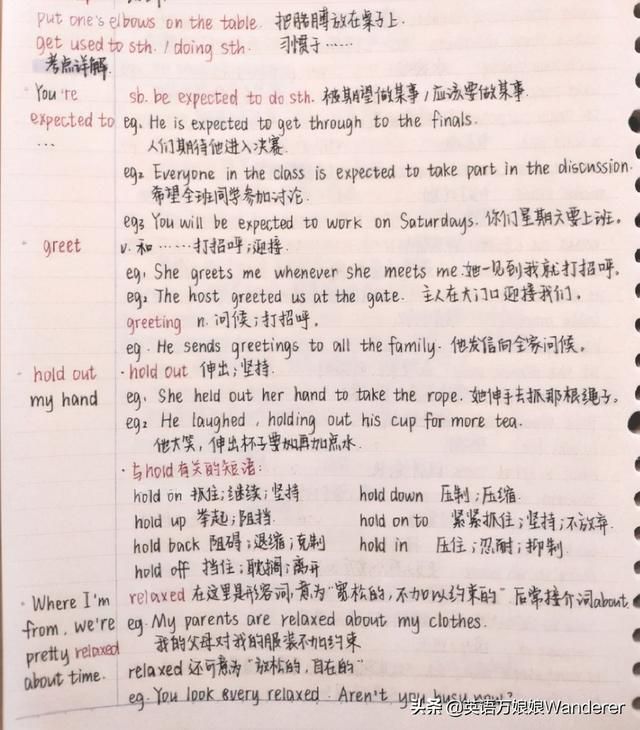 put one's elbows on the table. 把胳膊放在桌子上.
get used to sth. / doing sth. 习惯于……
考点详解.
You're expected to ...
sb. be expected to do sth. 被期望做某事/应该要做某事.
eg1 He is expected to get through to the finals.
人们期待他进入决赛.
eg2 Everyone in the class is expected to take part in the discussion.
希望全班同学参加讨论.
eg3 You will be expected to work on Saturdays. 你们星期六要上班。
greet
v. 和……打招呼;迎接.
eg1 She greets me whenever she meets me.她一见到我就打招呼。
eg2 The host greeted us at the gate. 主人在大门口迎接我们。
greeting n. 问候;打招呼。
eg. He sends greetings to all the family. 他发信向全家问候。
hold out my hand
· hold out 伸出;坚持.
eg1 She held out her hand to take the rope. 她伸手去抓那根绳子。
eg2 He laughed, holding out his cup for more tea.
他大笑，伸出杯子要再加点水.
· 与hold有关的短语:
hold on 抓住;继续;坚持 hold down 压制;压缩.
hold up 举起;阻挡. hold on to 紧紧抓住;坚持;不放弃.
hold back 阻碍;退缩;克制 hold in 压住;忍耐;抑制.
hold off 挡住;耽搁;离开
Where I'm from, we're pretty relaxed about time.
relaxed 在这里是形容词,意为"宽松的,不加以约束的" 后常接介词about.
eg. My parents are relaxed about my clothes.
我的父母对我的服装不加约束
relaxed 还可意为"放松的,自在的"
eg. You look very relaxed. Aren't you busy now?
头条 @英语万娘娘Wanderer